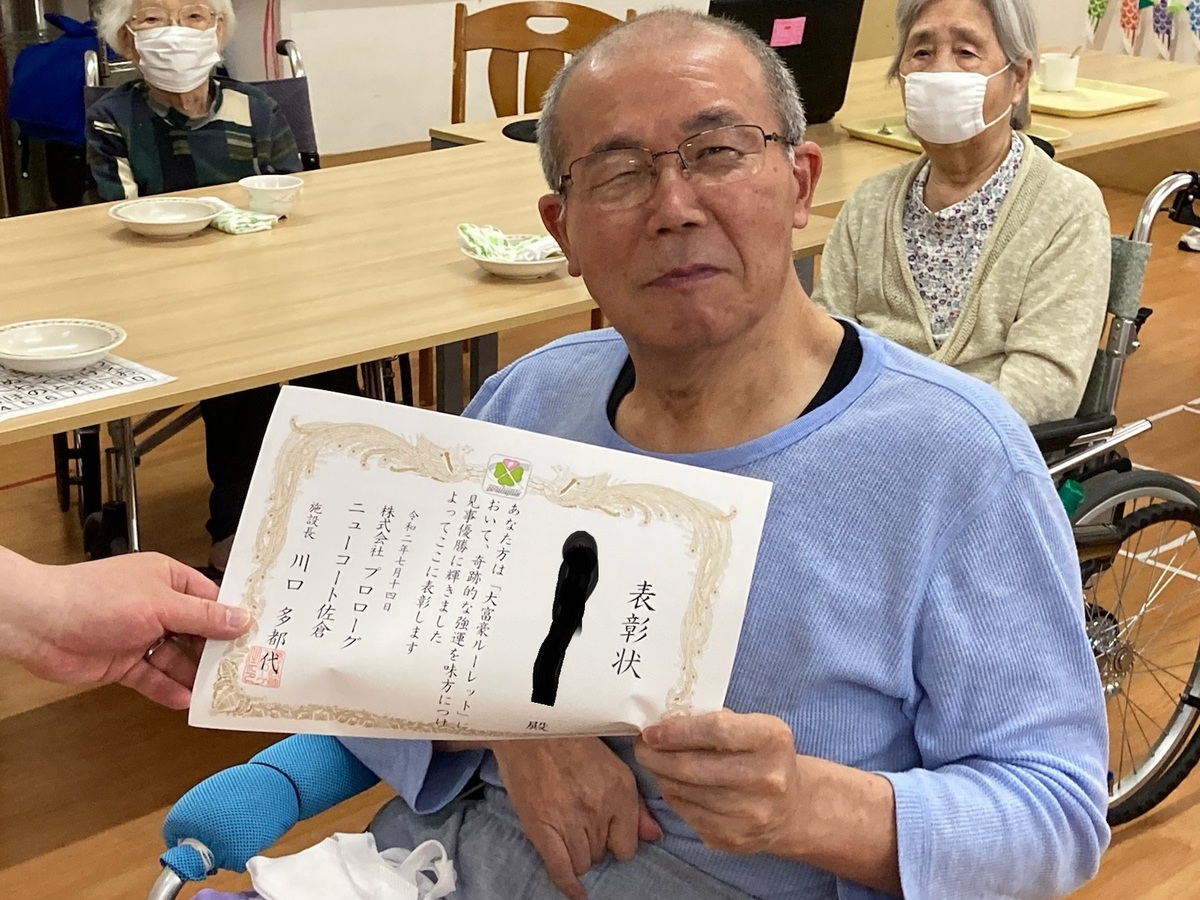 表彰状
殿
あなた方は「大富豪ルーレット」に
おいて、奇跡的な強運を味方につけ
見事優勝に輝きました
よってここに表彰します
令和二年七月十四日
株式会社 プロローグ
ニューコート佐倉
施設長 川口 多都代